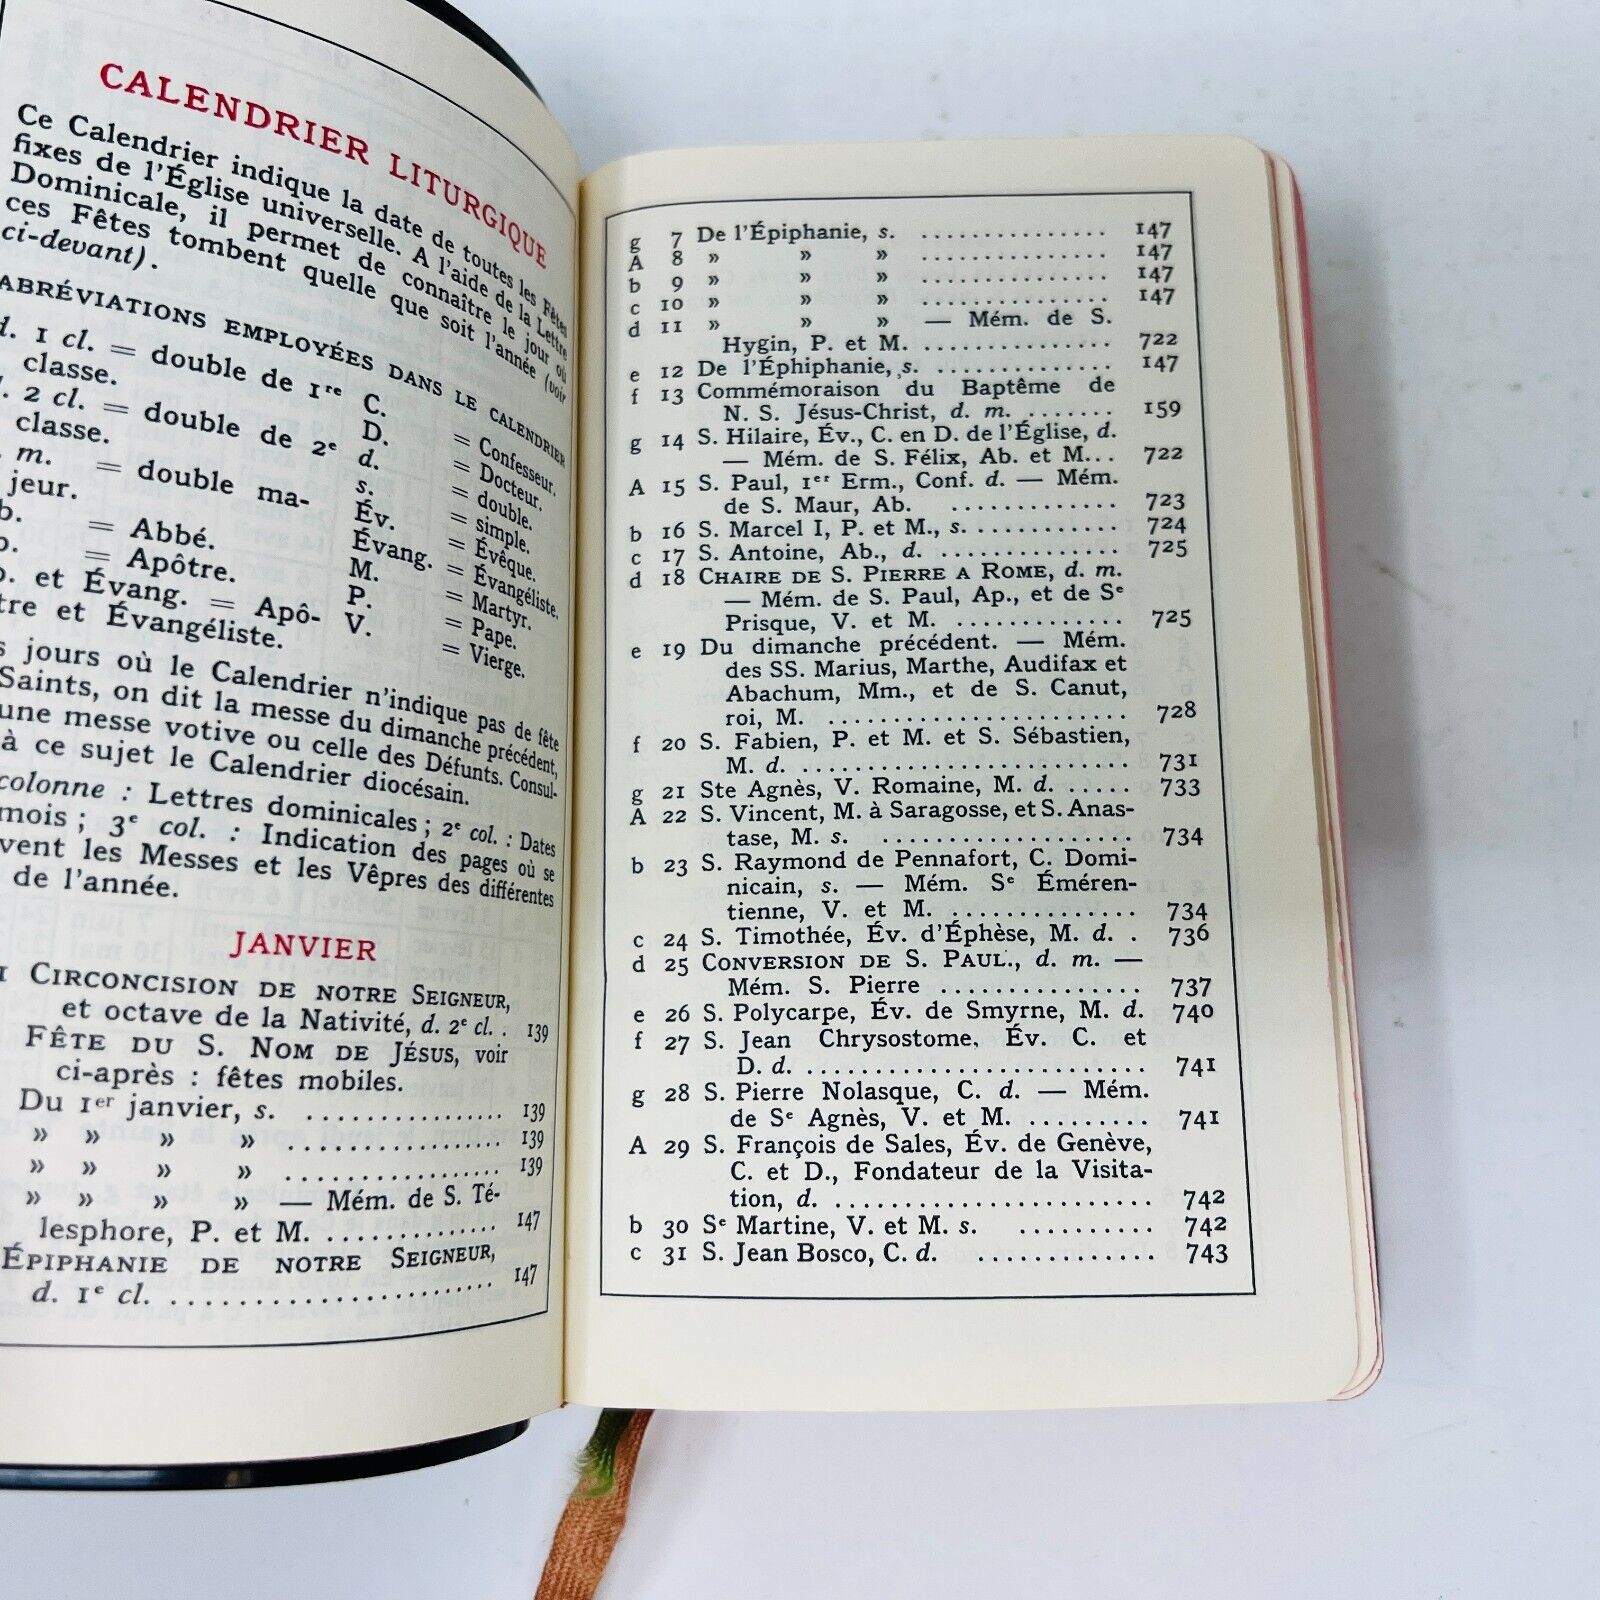 CALENDRIER LITURGIQUE
Ce Calendrier indique la date de toutes les Fêtes
fixes de l'Église universelle. A l'aide de la Lettre
Dominicale, il permet de connaître le jour où
ces Fêtes tombent quelle que soit l'année (voir
ci-devant).
ABRÉVIATIONS EMPLOYÉES DANS LE CALENDRIER
d. 1 cl. = double de 1re
classe.
2 cl. = double de 2e
classe.
m. = double ma-
jeur.
= Abbé.
= Apôtre.
et Évang. = Apô-
tre et Évangéliste.
C. = Confesseur.
D. = Docteur.
d. = double.
s. = simple.
Év. = Évêque.
Évang. = Évangéliste.
M. = Martyr.
P. = Pape.
V. = Vierge.
jours où le Calendrier n'indique pas de fête
Saints, on dit la messe du dimanche précédent,
une messe votive ou celle des Défunts. Consul-
à ce sujet le Calendrier diocésain.
colonne : Lettres dominicales ; 2e col. : Dates
mois ; 3e col. : Indication des pages où se
vent les Messes et les Vêpres des différentes
de l'année.
JANVIER
1 CIRCONCISION DE NOTRE SEIGNEUR,
et octave de la Nativité, d. 2e cl. . 139
FÊTE DU S. NOM DE JÉSUS, voir
ci-après : fêtes mobiles.
Du 1er janvier, s. ................ 139
» » » » ................ 139
» » » » ................ 139
» » » » — Mém. de S. Té-
lesphore, P. et M. ............. 147
ÉPIPHANIE DE NOTRE SEIGNEUR,
d. 1e cl. ........................ 147
g 7 De l'Épiphanie, s. ............... 147
A 8 » » » ............... 147
b 9 » » » ............... 147
c 10 » » » ............... 147
d 11 » » » — Mém. de S.
Hygin, P. et M. ............... 722
e 12 De l'Éphiphanie, s. .............. 147
f 13 Commémoraison du Baptême de
N. S. Jésus-Christ, d. m. ....... 159
g 14 S. Hilaire, Év., C. en D. de l'Église, d.
— Mém. de S. Félix, Ab. et M... 722
A 15 S. Paul, 1er Erm., Conf. d. — Mém.
de S. Maur, Ab. ............. 723
b 16 S. Marcel I, P. et M., s. ............ 724
c 17 S. Antoine, Ab., d. .............. 725
d 18 CHAIRE DE S. PIERRE A ROME, d. m.
— Mém. de S. Paul, Ap., et de Se
Prisque, V. et M. ............. 725
e 19 Du dimanche précédent. — Mém.
des SS. Marius, Marthe, Audifax et
Abachum, Mm., et de S. Canut,
roi, M. ........................ 728
f 20 S. Fabien, P. et M. et S. Sébastien,
M. d. .......................... 731
g 21 Ste Agnès, V. Romaine, M. d. ..... 733
A 22 S. Vincent, M. à Saragosse, et S. Anas-
tase, M. s. ...................... 734
b 23 S. Raymond de Pennafort, C. Domi-
nicain, s. — Mém. Se Éméren-
tienne, V. et M. ............... 734
c 24 S. Timothée, Év. d'Éphèse, M. d. . 736
d 25 CONVERSION DE S. PAUL., d. m. —
Mém. S. Pierre ................ 737
e 26 S. Polycarpe, Év. de Smyrne, M. d. 740
f 27 S. Jean Chrysostome, Év. C. et
D. d. .......................... 741
g 28 S. Pierre Nolasque, C. d. — Mém.
de Se Agnès, V. et M. ......... 741
A 29 S. François de Sales, Év. de Genève,
C. et D., Fondateur de la Visita-
tion, d. ........................ 742
b 30 Se Martine, V. et M. s. .......... 742
c 31 S. Jean Bosco, C. d. ............. 743